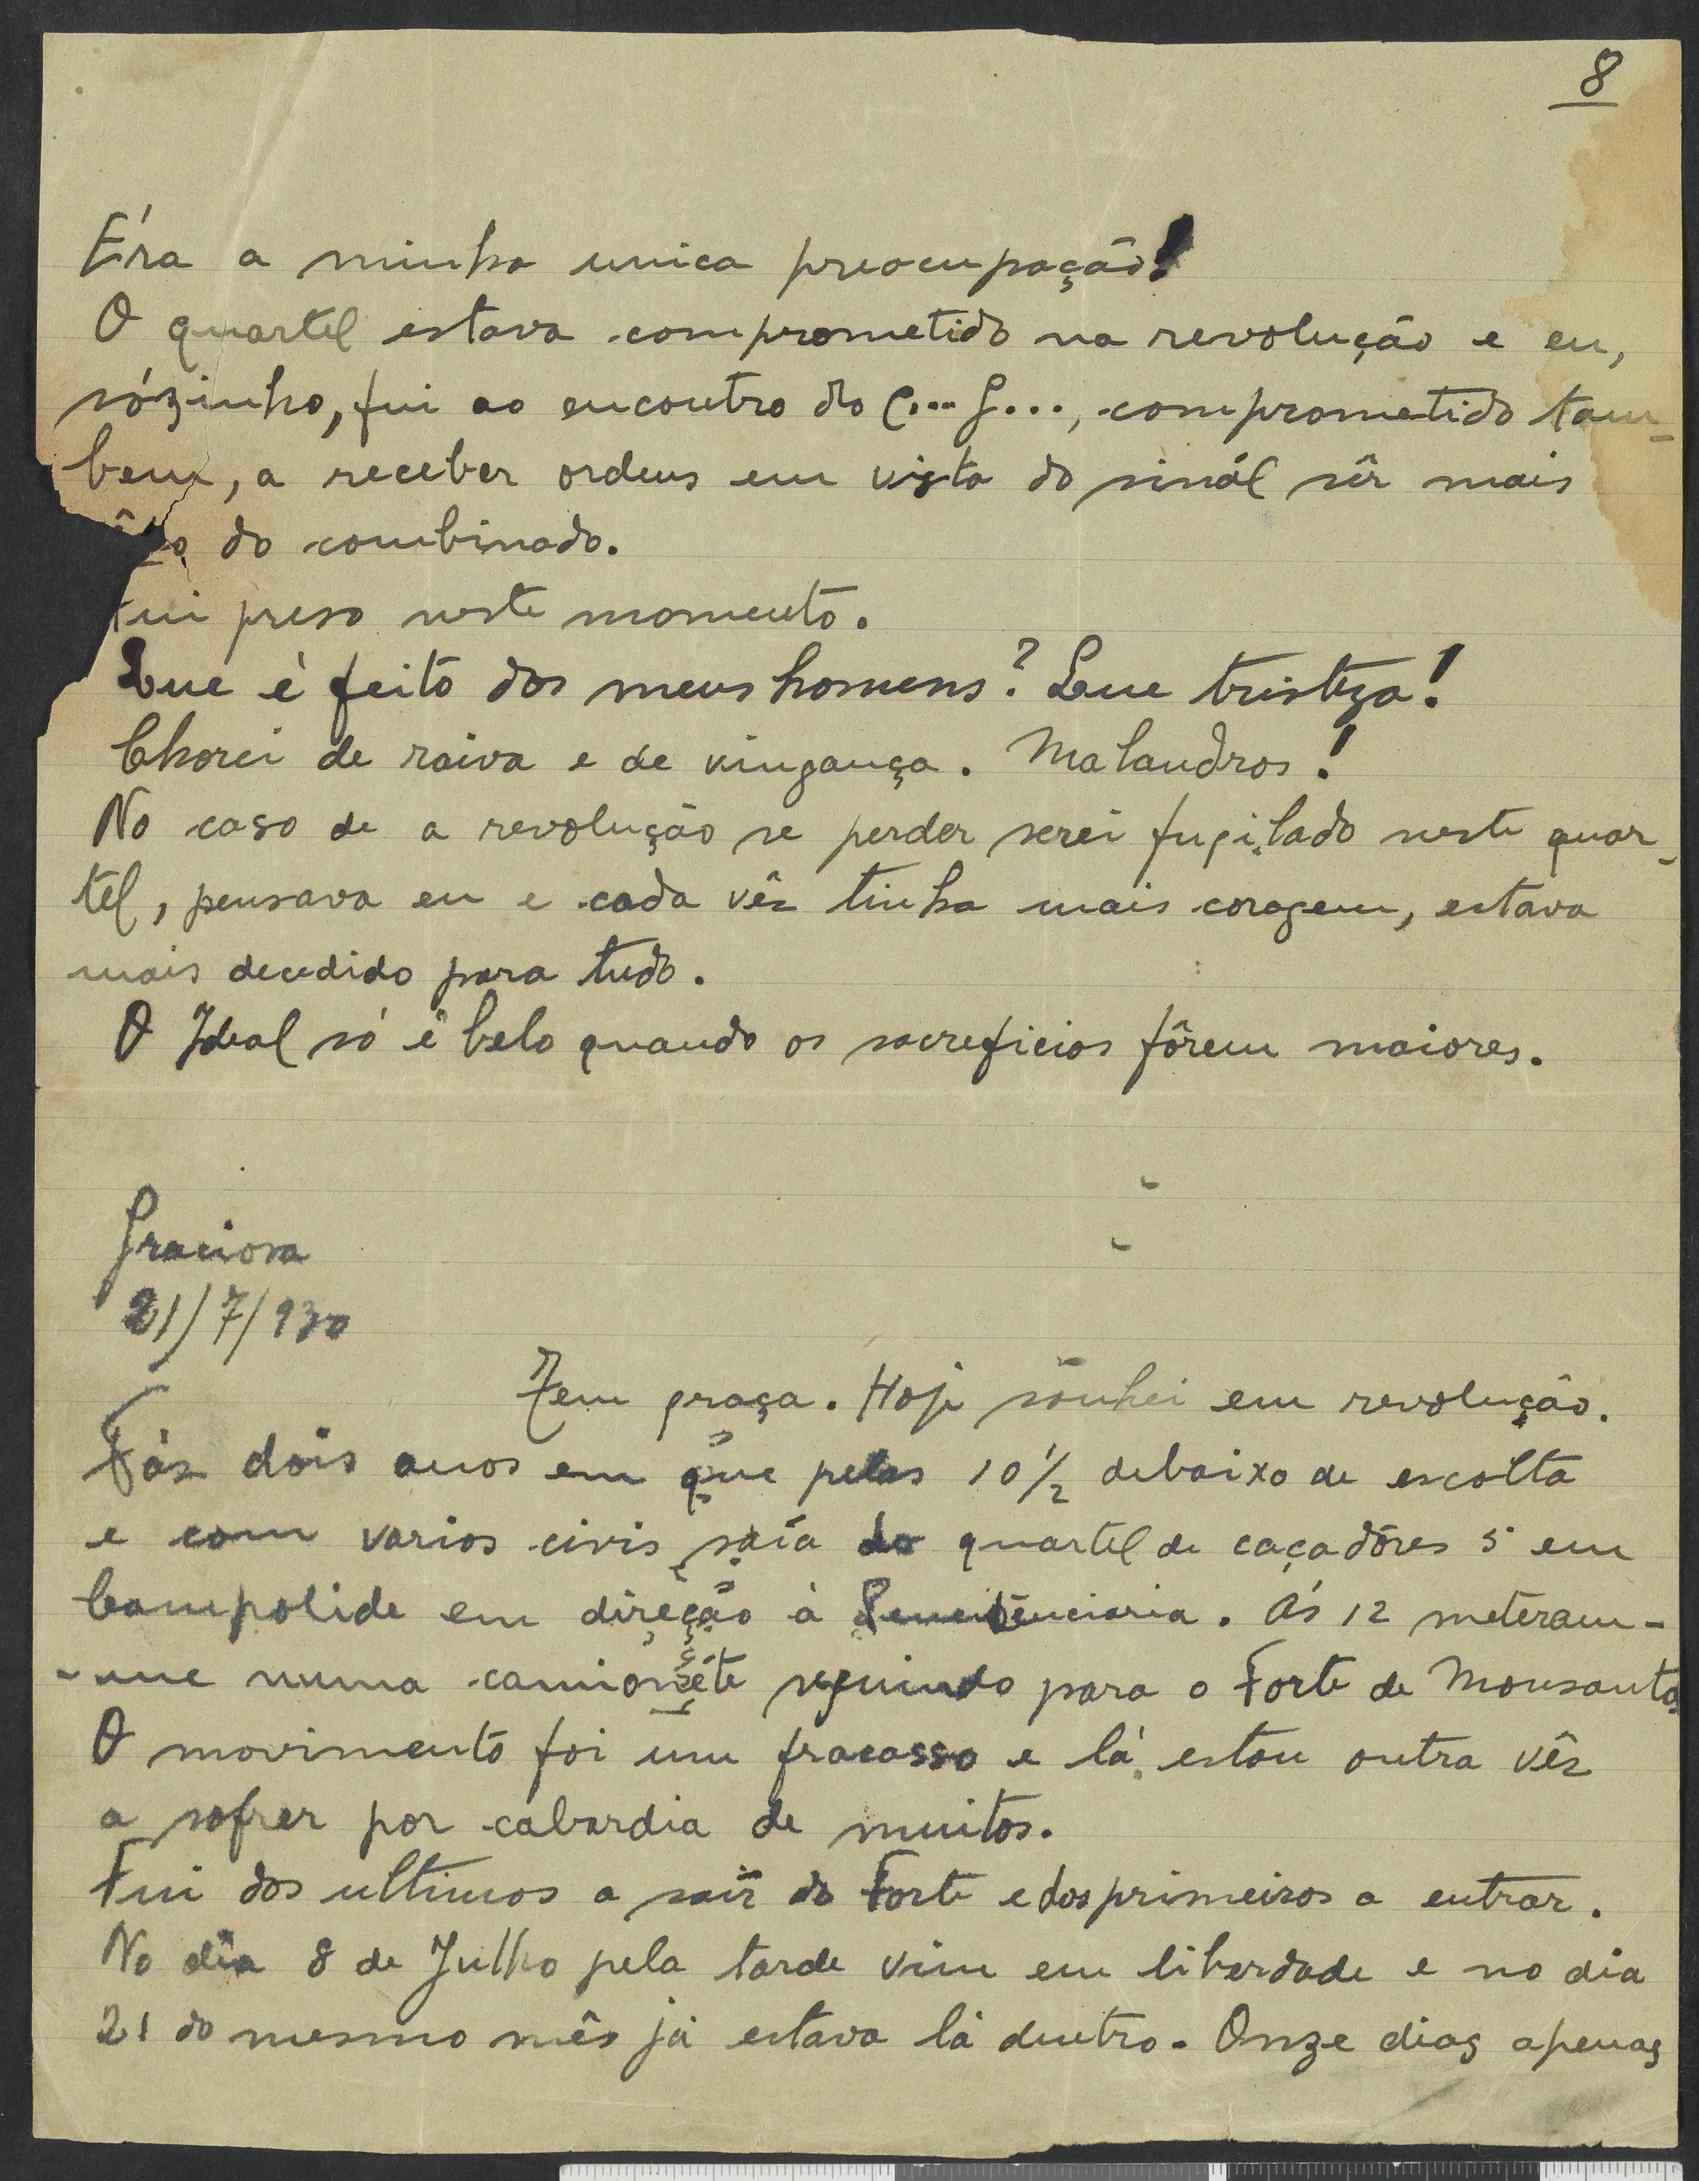 8
Éra a minha unica preocupação!
O quartel estava comprometido na revolução e eu,
sózinho, fui ao encontro do C... G..., comprometido tam-
bem, a receber ordens em vista do sinál sêr mais
do combinado.
Fui preso neste momento.
Que é feito dos meus homens? Que tristeza!
Chorei de raiva e de vingança. Malandros!
No caso de a revolução se perder serei fugilado neste quar-
tel, pensava eu e cada vês tinha mais coragem, estava
mais decedido para tudo.
O Ideal só é belo quando os sacreficios fôrem maiores.
Graciosa
21/7/930
Tem graça. Hoje sonhei em revolução.
Fás dois anos em que pelas 10 1/2 debaixo de escolta
e com varios civis saía do quartel de caçadôres 5 em
Campolide em direção á Penentênciaria. Ás 12 meteram-
-me numa camionéte seguindo para o Forte de Monsanto.
O movimento foi um fracasso e lá estou outra vês
a sofrer por cabardia de muitos.
Fui dos ultimos a sair do Forte e dos primeiros a entrar.
No dia 8 de Julho pela tarde vim em liberdade e no dia
21 do mesmo mês já estava lá dentro. Onze dias apenas